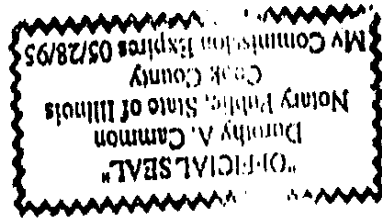 "OFFICIAL SEAL"
Dorothy A. Cammon
Notary Public, State of Illinois
Cook County
My Commission Expires 05/28/95